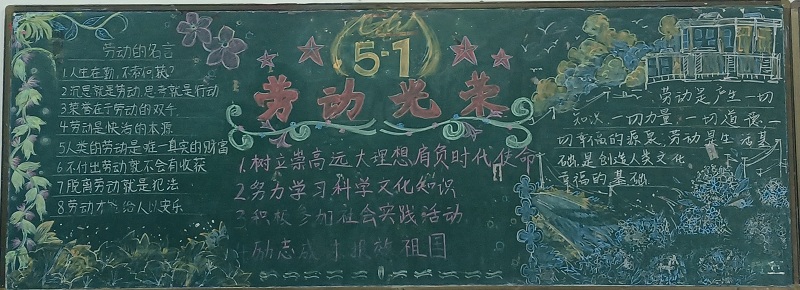 劳动的名言
1人生在勤,不索何获?
2沉思就是劳动,思考就是行动
3荣誉在于劳动的双手
4劳动是快活的本源
5人类的劳动是唯一真实的财富
6不付出劳动就不会有收获
7脱离劳动就是犯法
8劳动才能给人以安乐
5·1
劳动光荣
1.树立崇高远大理想,肩负时代使命
2.努力学习科学文化知识
3积极参加社会实践活动
励志成才报效祖国
劳动是产生一切
知识、一切力量、一切道德、一
切幸福的源泉,劳动是生活基
础,是创造人类文化
幸福的基础